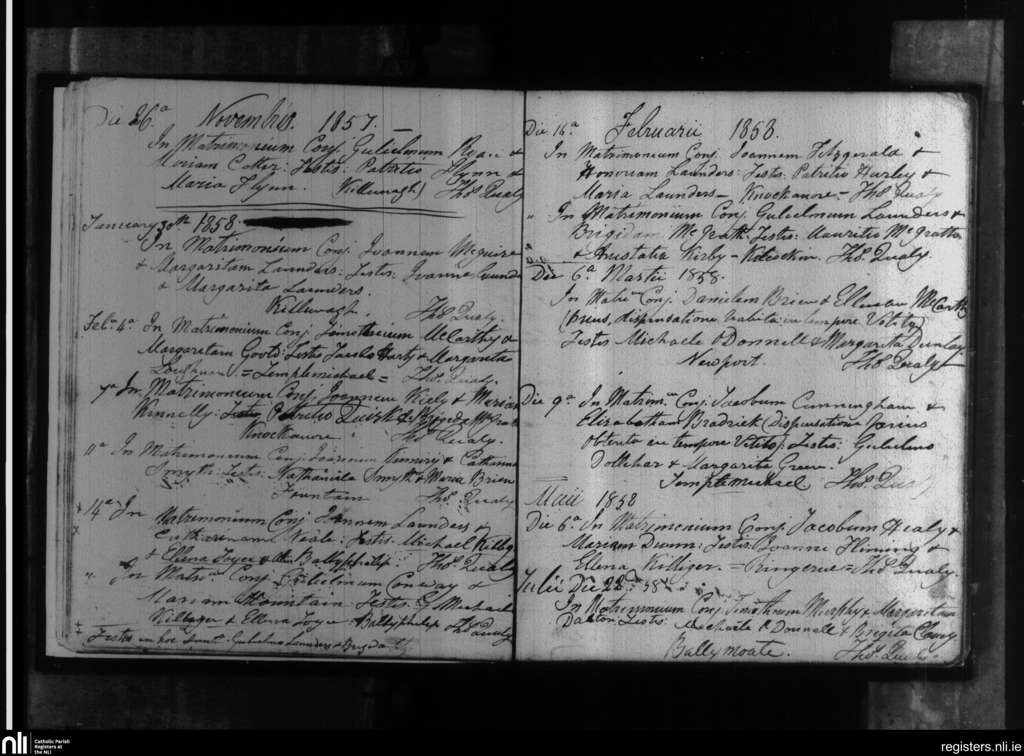 Die 26.a Novembris. 1857.
In Matrimonium Conj. Gulielmum Ryan &
Mariam Cotter: Testes. Patritio Flynn &
Maria Flynn. Killwagh Ths. Qualy
January 30th 1858.
In Matrimonium Conj. Joannem
& Margaritam Launders: Testes: Joanne
& Margarita Launders.
Killwagh. Ths. Qualy.
Feb. 4a In Matrimonium Conj McCarthy &
Margaritam Goold: Testes Jacobo Harty & Margarita
= Templemichael = Ths. Qualy.
7a In Matrimonium Conj. Joannem Kiely & Mariam
Kinnelly: Testes, Patritio Quirk & Brigida McGrath
Knockanore. Ths. Qualy.
11a In Matrimonium Conj. Joannem & Catharina
Smyth: Testes. Smyth & Maria Brien
Fountain Ths. Qualy
14a In
Matrimonium Conj Joannem Launders &
Neale: Testes. Michael
& Ellena Joyce Ballyphilip: Ths. Qualy
" In Matri Conj. Gulielmum Conway &
Mariam Fountain. Testes. Michael
& Ellena Joyce. Ballyphilip Ths Qualy
Testes in hoc Gulielmo Launders & Brigida
Die 16.a Februarii 1858.
In Matrimonium Conj. Joannem Fitzgerald &
Honoriam Launders: Testes: Patritio Hurley &
Maria Launders - Knockanore - Ths Qualy
" In Matrimonium Conj. Gulielmum Launders &
Brigidam McGrath. Testes: Mauritio McGrath
& Anastatia Kirby - Ths. Qualy.
Die 6.a Martii 1858.
In Matri Conj. Danielem Brien & Ellenam McCarthy
(prius, dispensatione habita in tempore Vetito)
Testes Michaele O Donnell & Margarita Dunlay.
Newport Ths Qualy
Die 9.a In Matrim. Conj. Jacobum Cunningham &
Elizabetham Brodrick (Dispensatione prius
obtenta in tempore Vetito). Testes. Gulielmo
& Margarita Greene.
Templemichael Ths. Qualy
Maii 1858
Die 6.a In Matrimonium Conj. Jacobum Healy &
Mariam : Testes. Joanne Fleming &
Ellena = = Ths Qualy.
Julii Die 22 58
In Matrimonium Conj Timotheum Murphy & Margaritam
Dalton: Testes. Michaele O Donnell & Brigita Clancy
Ballymoate. Ths. Qualy
nli
Catholic Parish
Registers at
the NLI
registers.nli.ie